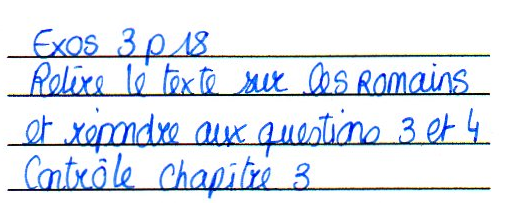 Exos 3 p 18
Relire le texte sur les Romains
et répondre aux questions 3 et 4
Contrôle chapitre 3